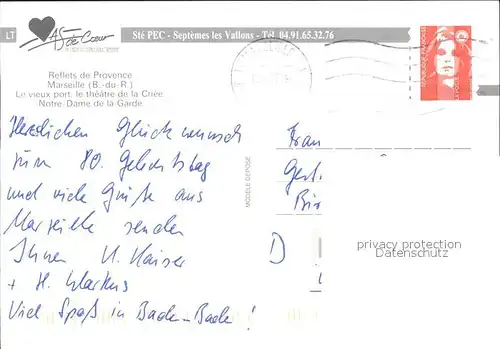 LT
AS de Cœur
Sté PEC - Septèmes les Vallons - Tél. 04.91.65.32.76
Reflets de Provence
Marseille (B.-du-R.)
Le vieux port, le théâtre de la Criée
Notre-Dame de la Garde
Herzlichen Glückwunsch
zum 80. Geburtstag
und viele Grüße aus
Marseille senden
Ihnen U. Kaiser
+ H. Markus
Viel Spaß in Baden-Bade!
MODÈLE DÉPOSÉ
Frau
Gert
Bir
D
privacy protection
Datenschutz